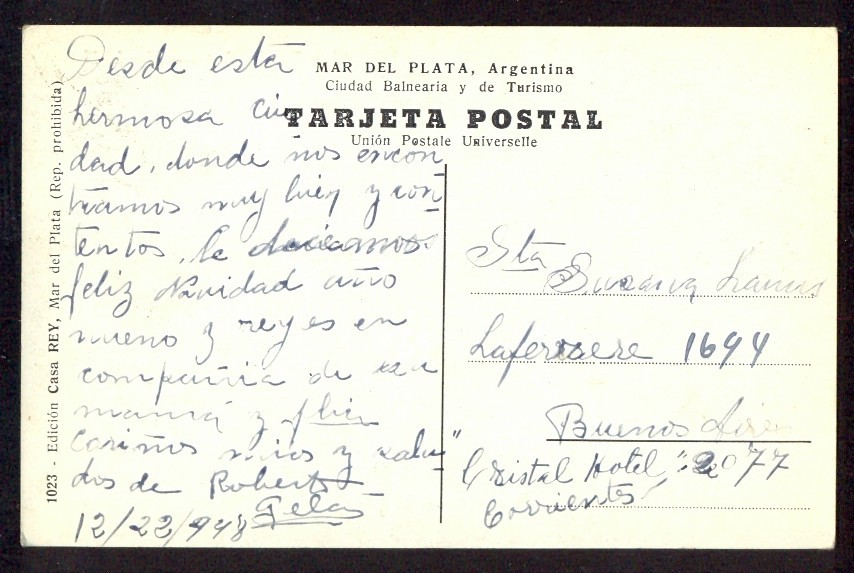 Desde esta
hermosa ciu
dad, donde nos encon
tramos muy bien y con
tentos, le deseamos
feliz Navidad año
nueno y reyes en
compañia de su
mamá y
cariños mios y salu
dos de Roberto
12/22/948
MAR DEL PLATA, Argentina
Ciudad Balnearia y de Turismo
TARJETA POSTAL
Unión Postale Universelle
Sta
Susana Lanus
Laferrere 1644
Buenos Aires
"Cristal Hotel" 2077
Corrientes
1023 - Edición Casa REY, Mar del Plata (Rep. prohibida)